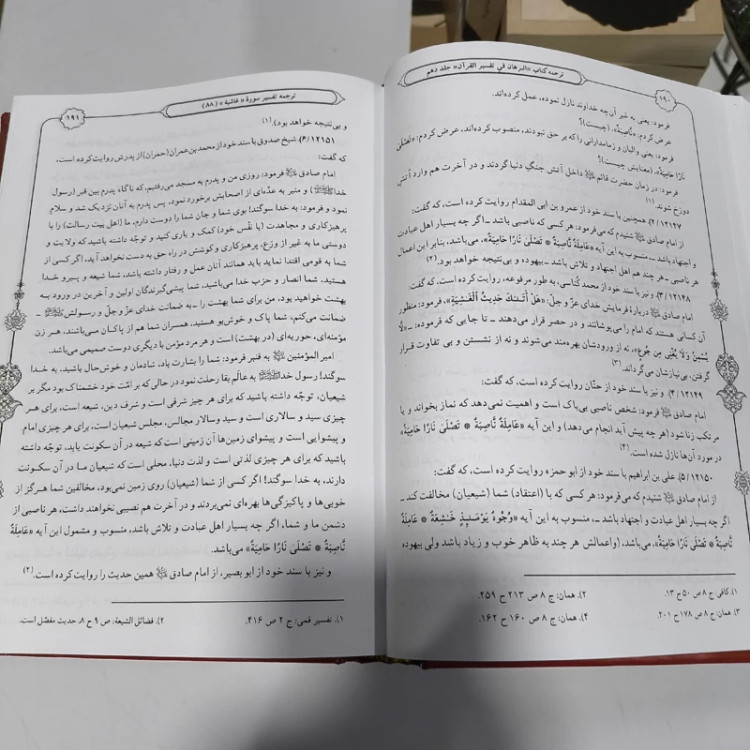 ترجمه کتاب «البرهان في تفسیر القرآن» جلد دهم
۱۹۰
فرمود: یعنی به غیر آن‌چه خداوند نازل نموده، عمل کرده‌اند.
عرض کردم: نَّاصِبَةٌ، (چیست)؟
فرمود: یعنی والیان و زمامدارانی را که بر حق نبودند، منصوب کرده‌اند، عرض کردم: «تَصْلَىٰ
نَارًا حَامِيَةً»، (معنایش چیست)؟
فرمود: در زمان حضرت قائم ﷺ داخل آتش جنگِ دنیا گردند و در آخرت هم وارد آتش
دوزخ شوند. (۱)
۲/۱۲۱۴۷) همچنین با سند خود از عمرو بن ابی المقدام روایت کرده است، که گفت:
از امام صادق ﷺ شنیدم که می‌فرمود: هر کسی که ناصبی باشد ـ اگر چه بسیار اهل عبادت
و اجتهاد باشد ـ منسوب به این آیه «عَامِلَةٌ نَّاصِبَةٌ * تَصْلَىٰ نَارًا حَامِيَةً»، می‌باشد، بنابر این اعمال
هر ناصبی ـ هر چند هم اهل اجتهاد و تلاش باشد ـ بیهوده و بی‌نتیجه خواهد بود. (۲)
۳/۱۲۱۴۸) و نیز با سند خود از محمد کُناسی، به طور مرفوعه، روایت کرده است، که گفت:
امام صادق ﷺ دربارهٔ فرمایش خدای عزّ و جلّ: «هَلْ أَتَىٰكَ حَدِيثُ ٱلْغَٰشِيَةِ»، فرمود: منظور
آن کسانی هستند که امام را می‌پوشانند و در حصر قرار می‌دهند ـ تا جایی که فرموده: ـ «لَّا
يُسْمِنُ وَلَا يُغْنِي مِن جُوعٍ»، نه از ورودشان بهره‌مند می‌شوند و نه از نشستن و بی تفاوت قرار
گرفتن، بی‌نیازشان می‌گرداند. (۳)
۴/۱۲۱۴۹) و نیز با سند خود از حنّان روایت کرده است، که گفت:
امام صادق ﷺ فرمود: شخص ناصبی بی‌باک است و اهمیت نمی‌دهد که نماز بخواند و یا
مرتکب زنا شود (هر چه پیش آید انجام می‌دهد) و این آیه «عَامِلَةٌ نَّاصِبَةٌ * تَصْلَىٰ نَارًا حَامِيَةً»
در مورد آن‌ها نازل شده است. (۴)
۵/۱۲۱۵۰) علی بن ابراهیم با سند خود از ابو حمزه روایت کرده است، که گفت:
از امام صادق ﷺ شنیدم که می‌فرمود: هر کسی که با (اعتقاد) شما (شیعیان) مخالفت کند ـ
اگر چه بسیار اهل عبادت و اجتهاد باشد ـ، منسوب به این آیه «وُجُوهٌ يَوْمَئِذٍ خَٰشِعَةٌ * عَامِلَةٌ
نَّاصِبَةٌ * تَصْلَىٰ نَارًا حَامِيَةً»، می‌باشد، (و اعمالش هر چند به ظاهر خوب و زیاد باشد ولی بیهوده
۱). کافی: ج ۸ ص ۵۰ ح ۱۳.
۲). همان: ج ۸ ص ۲۱۳ ح ۲۵۹.
۳). همان: ج ۸ ص ۱۷۸ ح ۲۰۱.
۴). همان: ج ۸ ص ۱۶۰ ح ۱۶۲.
ترجمه تفسیر سورهٔ «غاشیة» (۸۸)
۱۹۱
و بی نتیجه خواهد بود). (۱)
۶/۱۲۱۵۱) شیخ صدوق با سند خود از محمد بن عمران (حمران) از پدرش روایت کرده است،
که گفت:
امام صادق ﷺ فرمود: روزی من و پدرم به مسجد می‌رفتیم، که ناگاه پدرم بین قبر (رسول
خدا ﷺ) و منبر به عدّه‌ای از اصحابش برخورد نمود، پس پدرم به آنان نزدیک شد و سلام
نمود و فرمود: به خدا سوگند! بوی شما و جان شما را دوست دارم، ما (اهل بیت رسالت) را با
پرهیزکاری و مجاهدت (با نفْس خود) کمک و یاری کنید و توجّه داشته باشید که ولایت و
دوستی ما به غیر از وَرَع، پرهیزکاری و کوشش در راه حق به دست نخواهد آید، اگر کسی از
شما به قومی اقتدا نماید باید همانند آنان عمل و رفتار داشته باشد، شما شیعه و پیرو خدا
هستید، شما انصار و حزب خدا می‌باشید، شما پیشی‌گیرندگان اولین و آخرین در ورود بـه
بهشت خواهید بود، من برای شما بهشت را ـ به ضمانت خدای عزّ و جلّ و رسولش ﷺ ـ
ضمانت می‌کنم، شما پاک و خوش‌بو هستید، همسران شما هم از پاکـان مـی‌باشند، هـر زن
مؤمنه‌ای، حوریه‌ای (در بهشت) است و هر مرد مؤمن با دیگری دوست صمیمی می‌باشد.
امیر المؤمنین ﷺ به قنبر فرمود: شما را بشارت باد، شادمان و خوش‌حال باشید، به خدا
سوگند! رسول خدا ﷺ به عالَم بقا رحلت نمود در حالی که بر امّت خود خشمناک بود مگر بر
شیعیان، توجّه داشته باشید که برای هر چیز شرفی است و شرف دین، شیعه است، برای هـر
چیزی سید و سالاری است و سید و سالار مجالس، مجلس شیعیان است، برای هر چیزی امام
و پیشوایی است و پیشوای زمین‌ها آن زمینی است که شیعه در آن سکونت یابد، توجّه داشته
باشید که برای هر چیزی لذتی است و لذت دنیا، محلی است که شیعیان مـا در آن سکـونت
دارند، به خدا سوگند! اگر کسی از شما (شیعیان) روی زمین نمی‌بود، مخالفین شما هـرگز از
خوبی‌ها و پاکیزگی‌ها بهره‌ای نمی‌بردند و در آخرت هم نصیبی نخواهند داشت، هر ناصبی از
دشمن ما و شما، اگر چه بسیار اهل عبادت و تلاش باشد، منسوب و مشمول این آیه «عَامِلَةٌ
نَّاصِبَةٌ * تَصْلَىٰ نَارًا حَامِيَةً» می‌باشد.
و نیز با سند خود از ابو بصیر، از امام صادق ﷺ همین حدیث را روایت کرده است. (۲)
۱). تفسیر قمی: ج ۲ ص ۴۱۶.
۲). فضائل الشیعة: ص ۹ ح ۸، حدیث مفصّل است.